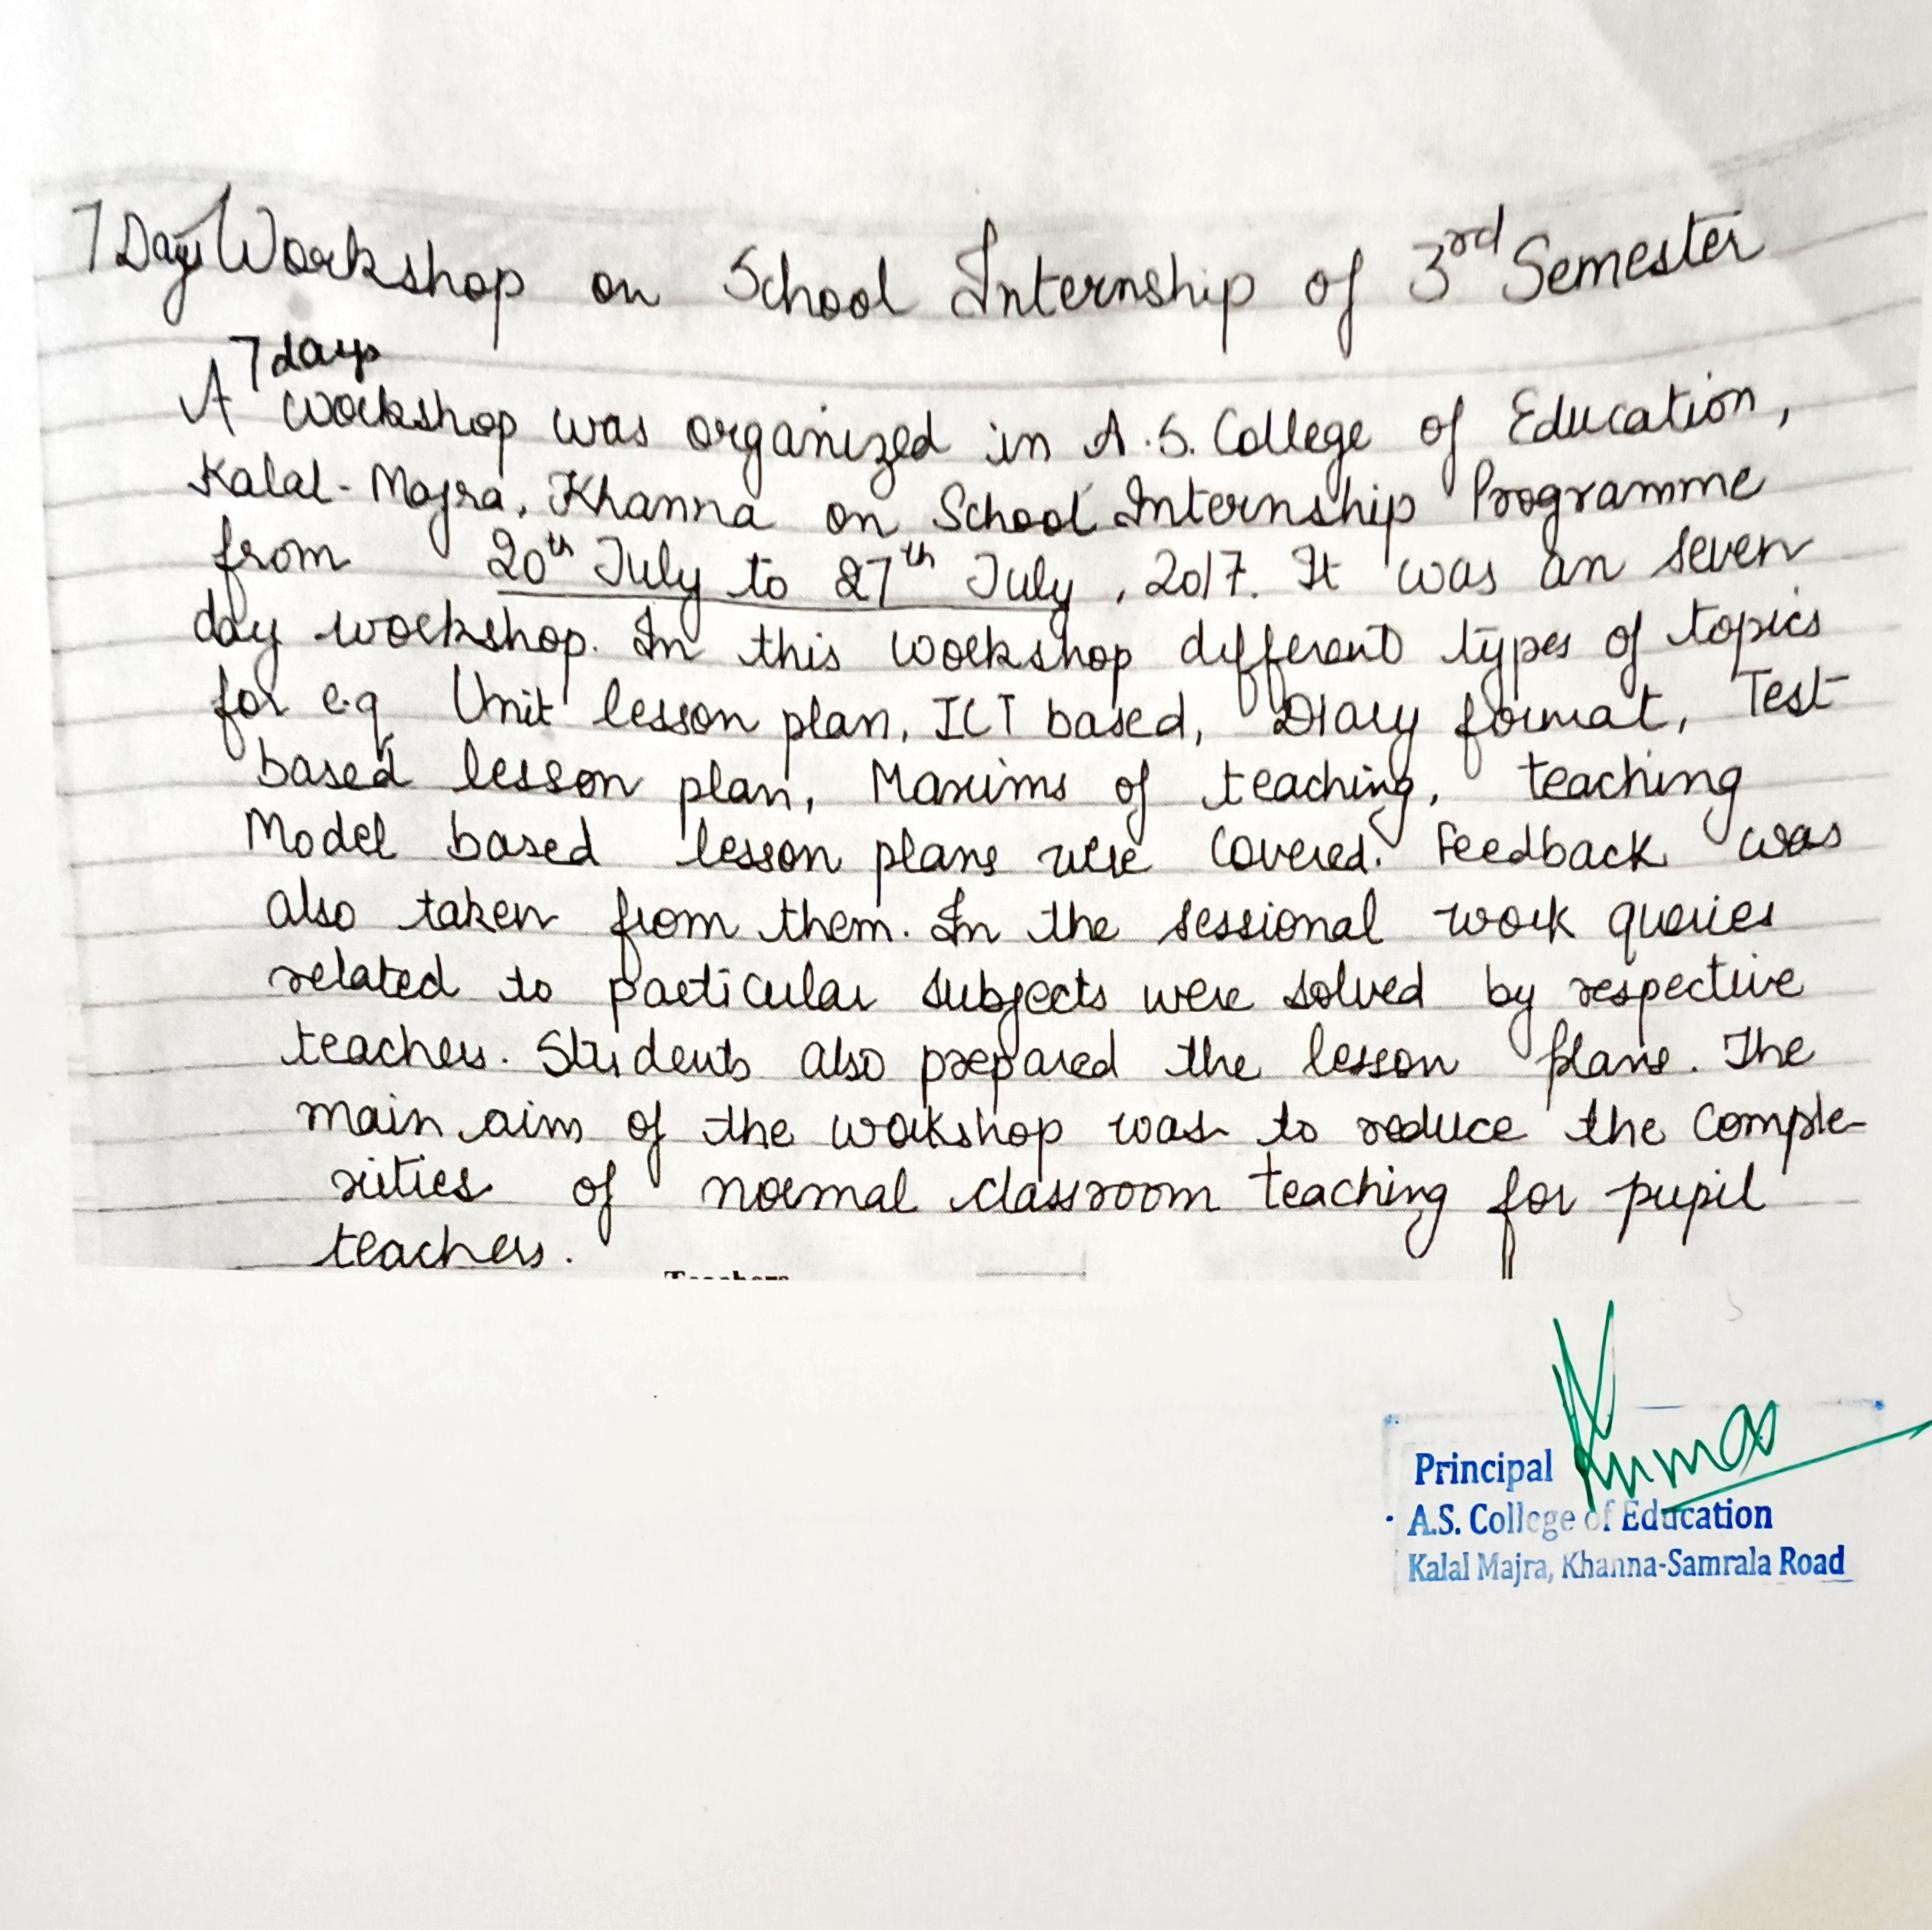 7 Days Workshop on School Internship of 3rd Semester
7 days
A workshop was organized in A.S. College of Education,
Kalal-Majra, Khanna on School Internship Programme
from 20th July to 27th July, 2017. It was an seven
day workshop. In this workshop different types of topics
for e.g Unit lesson plan, ICT based, Diary format, Test
based lesson plan, Maxims of teaching, teaching
Model based lesson plans were covered. Feedback was
also taken from them. In the sessional work queries
related to particular subjects were solved by respective
teachers. Students also prepared the lesson plans. The
main aim of the workshop was to reduce the comple-
xities of normal classroom teaching for pupil
teachers.
Teachers
Kumar
Principal
A.S. College of Education
Kalal Majra, Khanna-Samrala Road